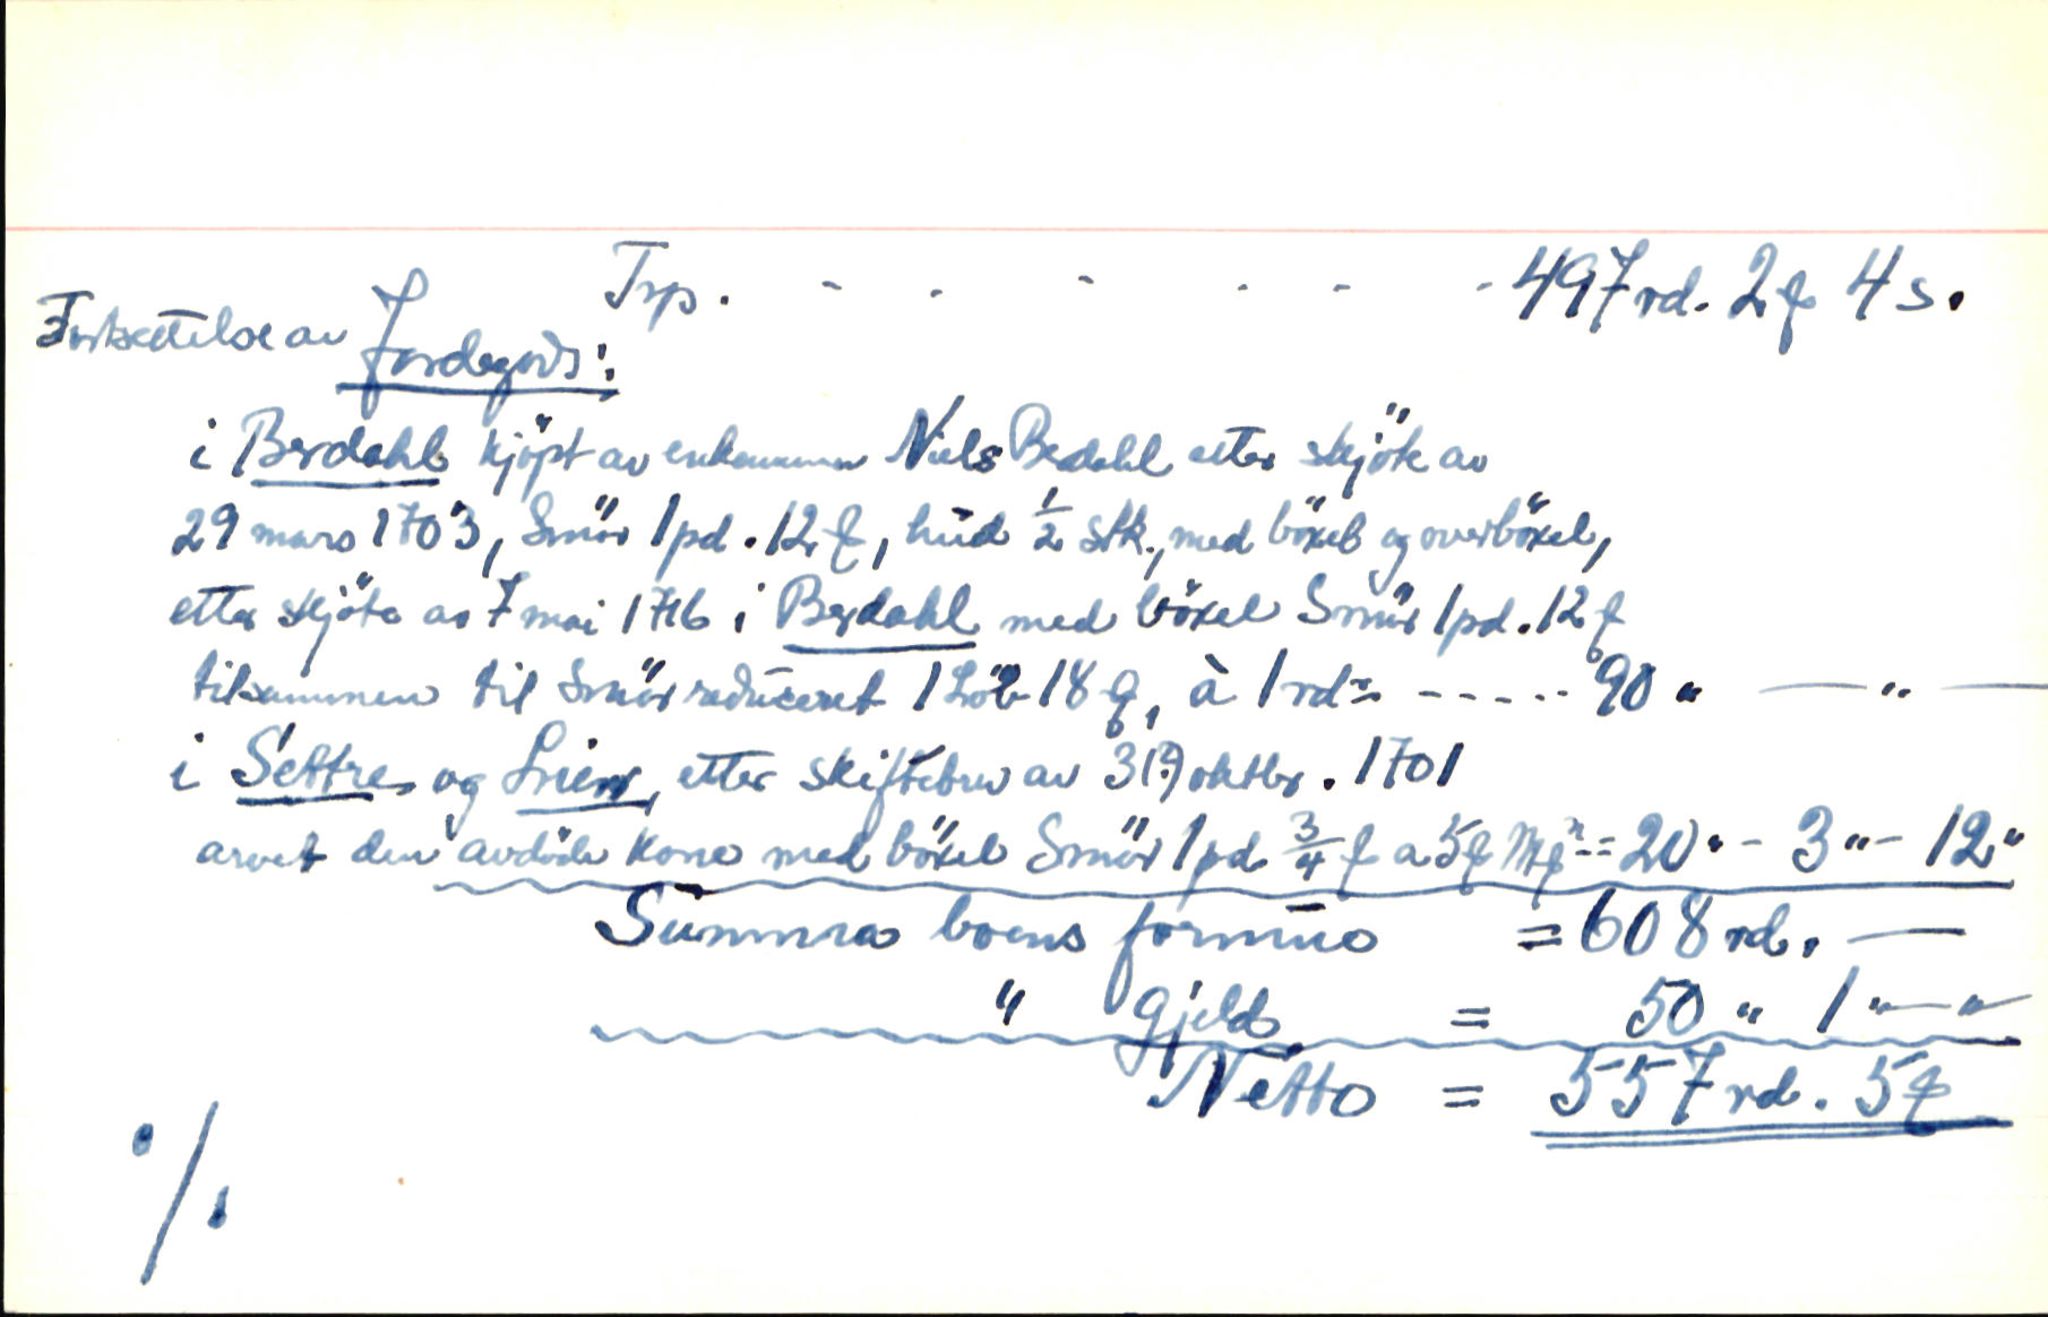 Trp. - - - - - - 497 rd. 2 ₰ 4 s.
Fortsettelse av Jordegods:
i Berdahl kjöpt av enkemann Niels Berdahl etter skjöte av
29 mars 1703, Smör 1 pd. 12 ₰, hud 1/2 stk., med böxel og overböxel,
etter skjöte av 7 mai 1716 i Berdahl med böxel Smör 1 pd. 12 ₰
tilsammen til Smör reduceret 1 Löb 18 ₰, à 1 rd = - - - - - 90 " — " —
i Settre og Lien, etter skiftebrev av 3(?) oktbr. 1701
arvet den avdöde kone med böxel Smör 1 pd 3/4 ₰ a 5 ₰ = 20 " - 3 " - 12 "
Summa boens formue = 608 rd. —
" Gjeld = 50 " 1 " — "
Netto = 557 rd. 5 ₰
./.